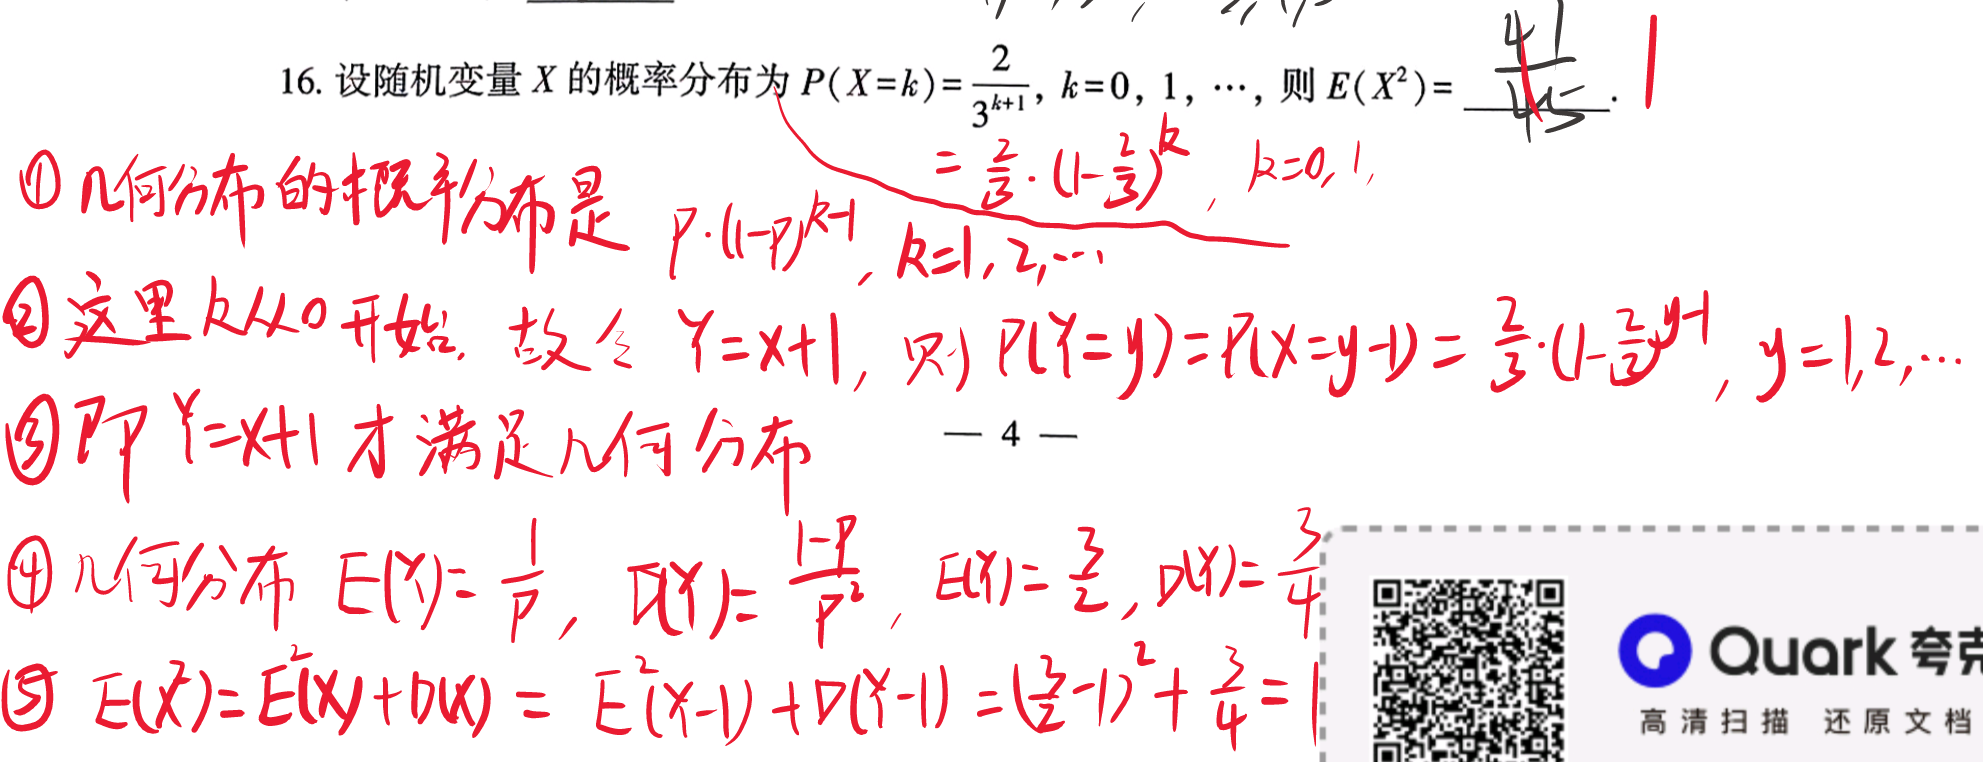 16. 设随机变量 X 的概率分布为 P(X=k)=2/3^{k+1}, k=0, 1, …, 则 E(X²)= ____. 1
= 2/3·(1-2/3)^k, k=0,1,
① 几何分布的概率分布是 P·(1-P)^{k-1}, k=1,2,…
② 这里k从0开始. 故令 Y=X+1, 则 P(Y=y)=P(X=y-1)=2/3·(1-2/3)^{y-1}, y=1,2,…
③ 即 Y=X+1 才满足几何分布
— 4 —
④ 几何分布 E(Y)=1/P, D(Y)=(1-P)/P², E(Y)=3/2, D(Y)=3/4
⑤ E(X²)=E²(X)+D(X) = E²(Y-1)+D(Y-1) =(3/2-1)²+3/4=1
Quark 夸克
高清扫描 还原文档